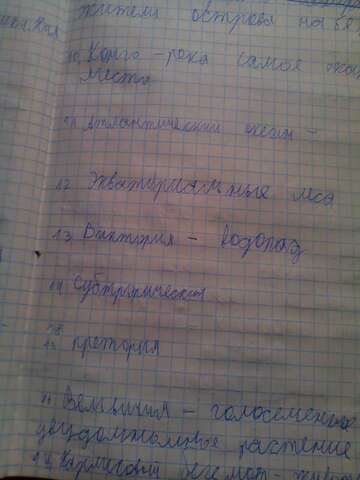 жители острова на
10. Конго - река самое
место
11 Атлантический океан -
12 Экваториальные леса
13 Виктория - водопад
14 Субтропический
15 претория
16 Вельвичия - голосеменное
двудольное растение
17 Карликовый бегемот -